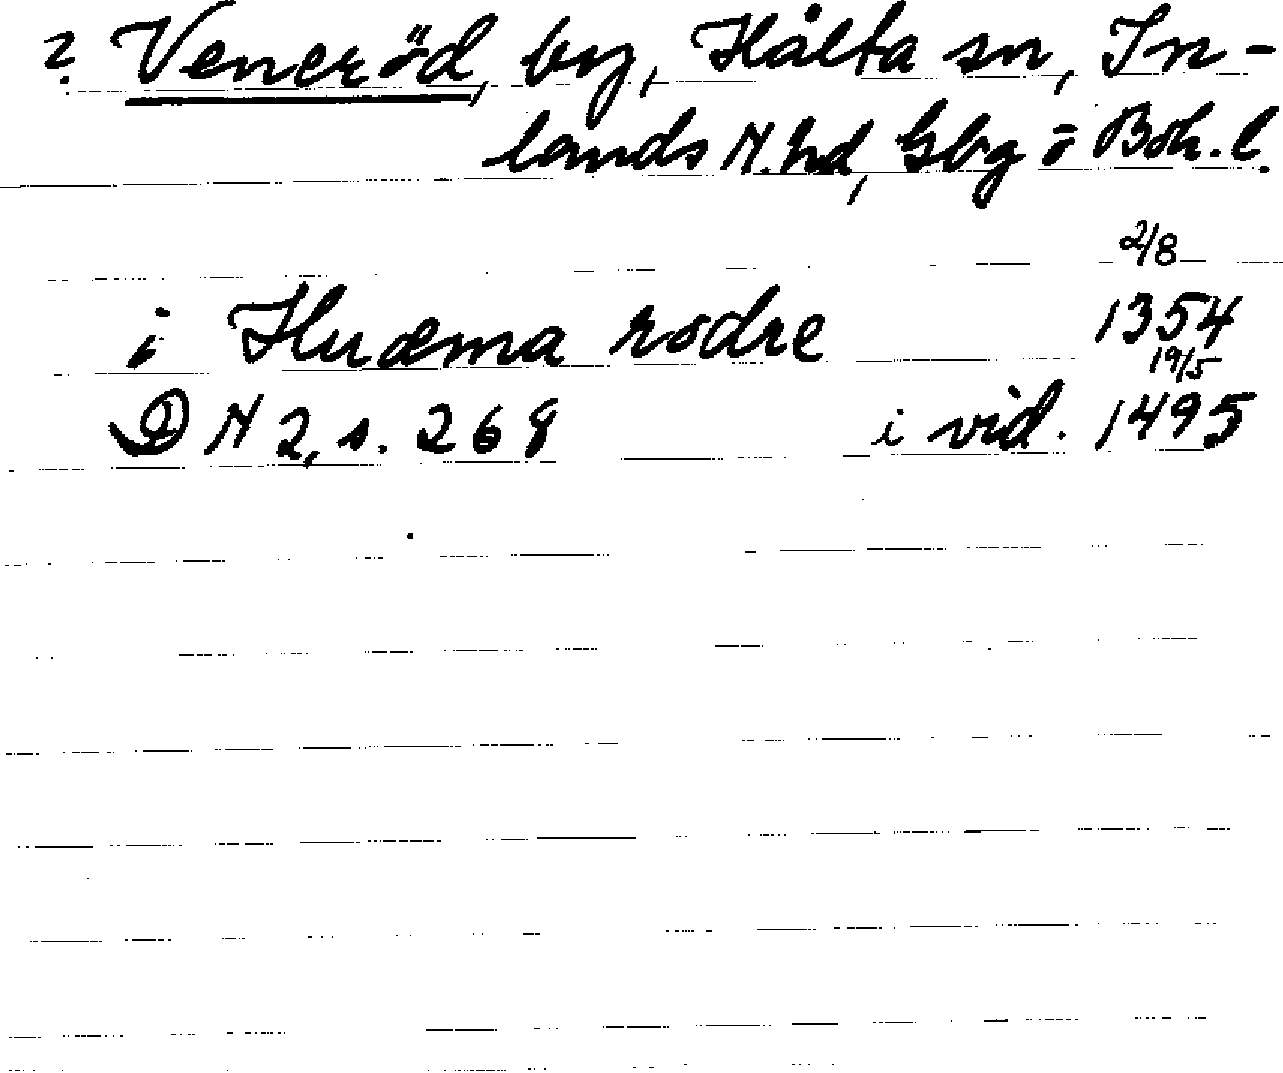 ? Veneröd, by, Hålta sn, In-
lands N. hd, Gbg o Boh. l.
2/8
i Huæma rodre 1354
19/5
DN 2, s. 268 i vid. 1495